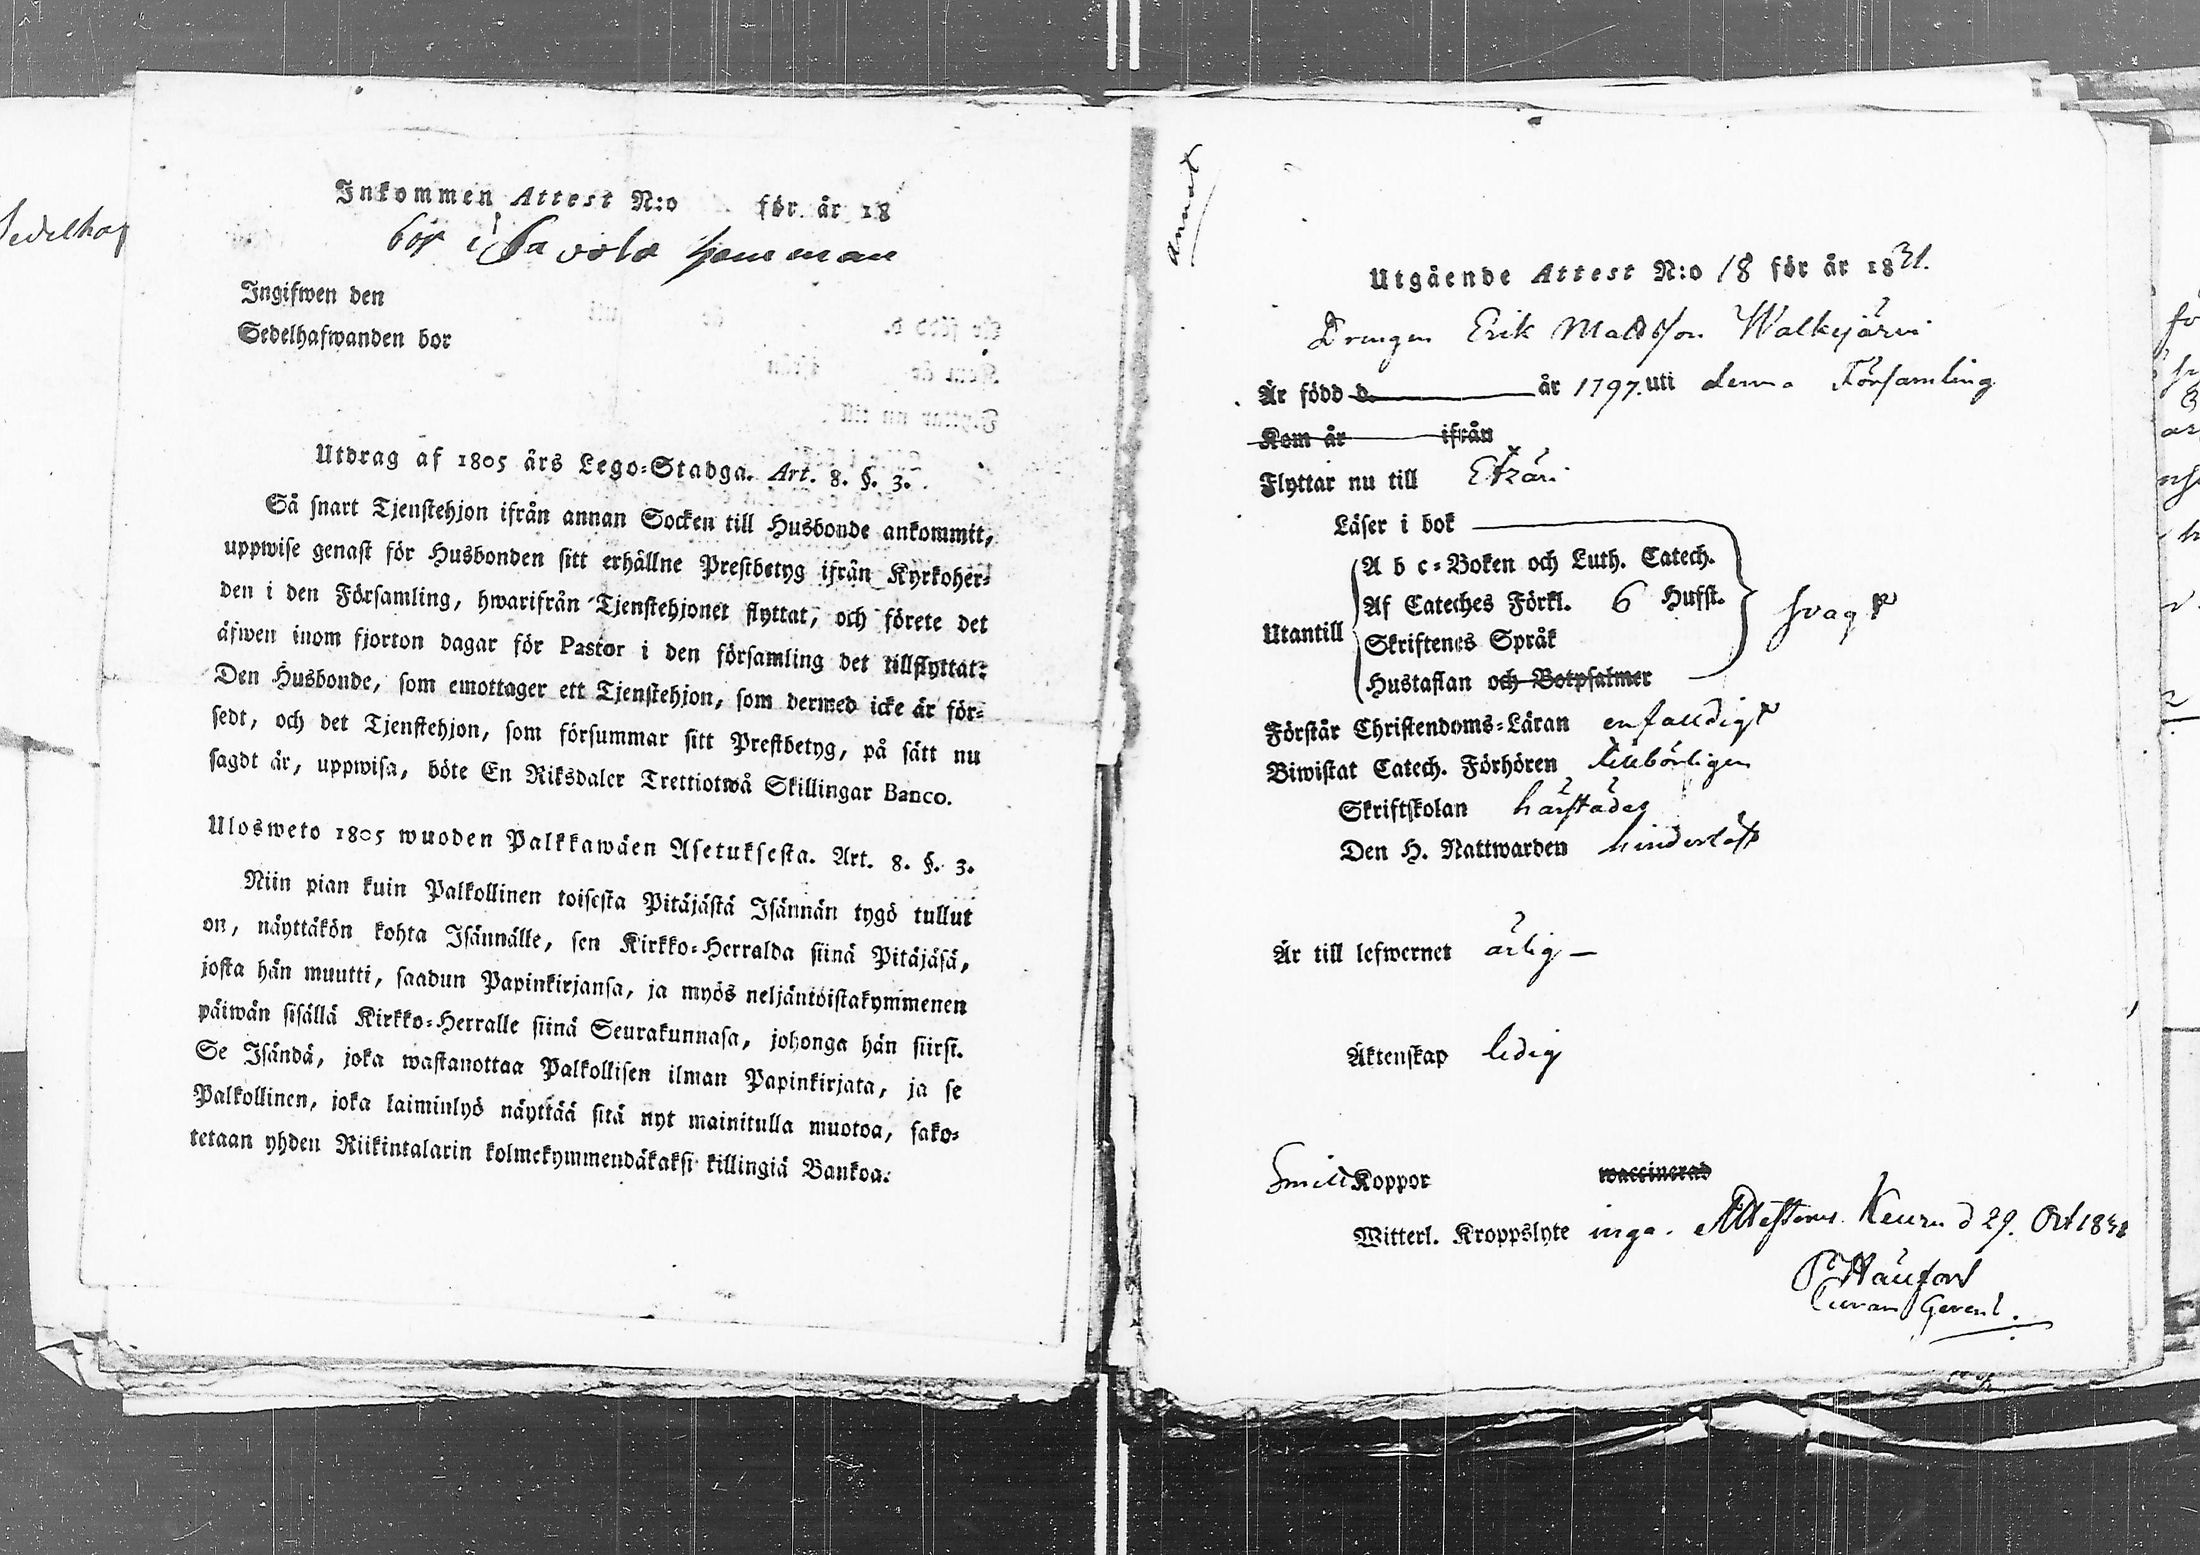 Sedelhaf
Inkommen Attest N:o för år 18
bor i Savola hemman
Ingifwen den
Sedelhafwanden bor
Utdrag af 1805 års Lego-Stadga. Art. 8. §. 3.
Så snart Tjenstehjon ifrån annan Socken till Husbonde ankommit,
uppwise genast för Husbonden sitt erhållne Prestbetyg ifrån Kyrkoher-
den i den Församling, hwarifrån Tjenstehjonet flyttat, och förete det
äfwen inom fjorton dagar för Pastor i den församling det tillflyttat:
Den Husbonde, som emottager ett Tjenstehjon, som dermed icke är för-
sedt, och det Tjenstehjon, som försummar sitt Prestbetyg, på sätt nu
sagdt är, uppwisa, böte En Riksdaler Trettiotwå Skillingar Banco.
Ulosweto 1805 wuoden Palkkawäen Asetuksesta. Art. 8. §. 3.
Niin pian kuin Palkollinen toisesta Pitäjästä Isännän tygö tullut
on, näyttäkön kohta Isännälle, sen Kirkko-Herralda siinä Pitäjäsä,
josta hän muutti, saadun Papinkirjansa, ja myös neljäntöistakymmenen
päiwän sisällä Kirkko-Herralle siinä Seurakunnasa, johonga hän siirst.
Se Isändä, joka wastanottaa Palkollisen ilman Papinkirjata, ja se
Palkollinen, joka laiminlyö näyttää sitä nyt mainitulla muotoa, sako-
tetaan yhden Riikintalarin kolmekymmendäkaksi killingiä Bankoa.
Utgående Attest N:o 18 för år 1831.
Drengen Erik Mattsson Walkejärvi
Är född d. år 1797. uti denna Församling
Kom år ifrån
Flyttar nu till Etzäri
Läser i bok
A b c-Boken och Luth. Catech.
Af Cateches Förkl. 6 Hufst.
Utantill svagt
Skriftenes Språk
Hustaflan och Botpsalmer
Förstår Christendoms-Läran enfaldigt
Biwistat Catech. Förhören tillbörligen
Skriftskolan härstädes
Den H. Nattwarden hinderlöst
Är till lefwernet ärlig
Äktenskap ledig
Koppor waccinerad
Witterl. Kroppslyte inga. Attesterar. Keuru d 29. Oct 1831